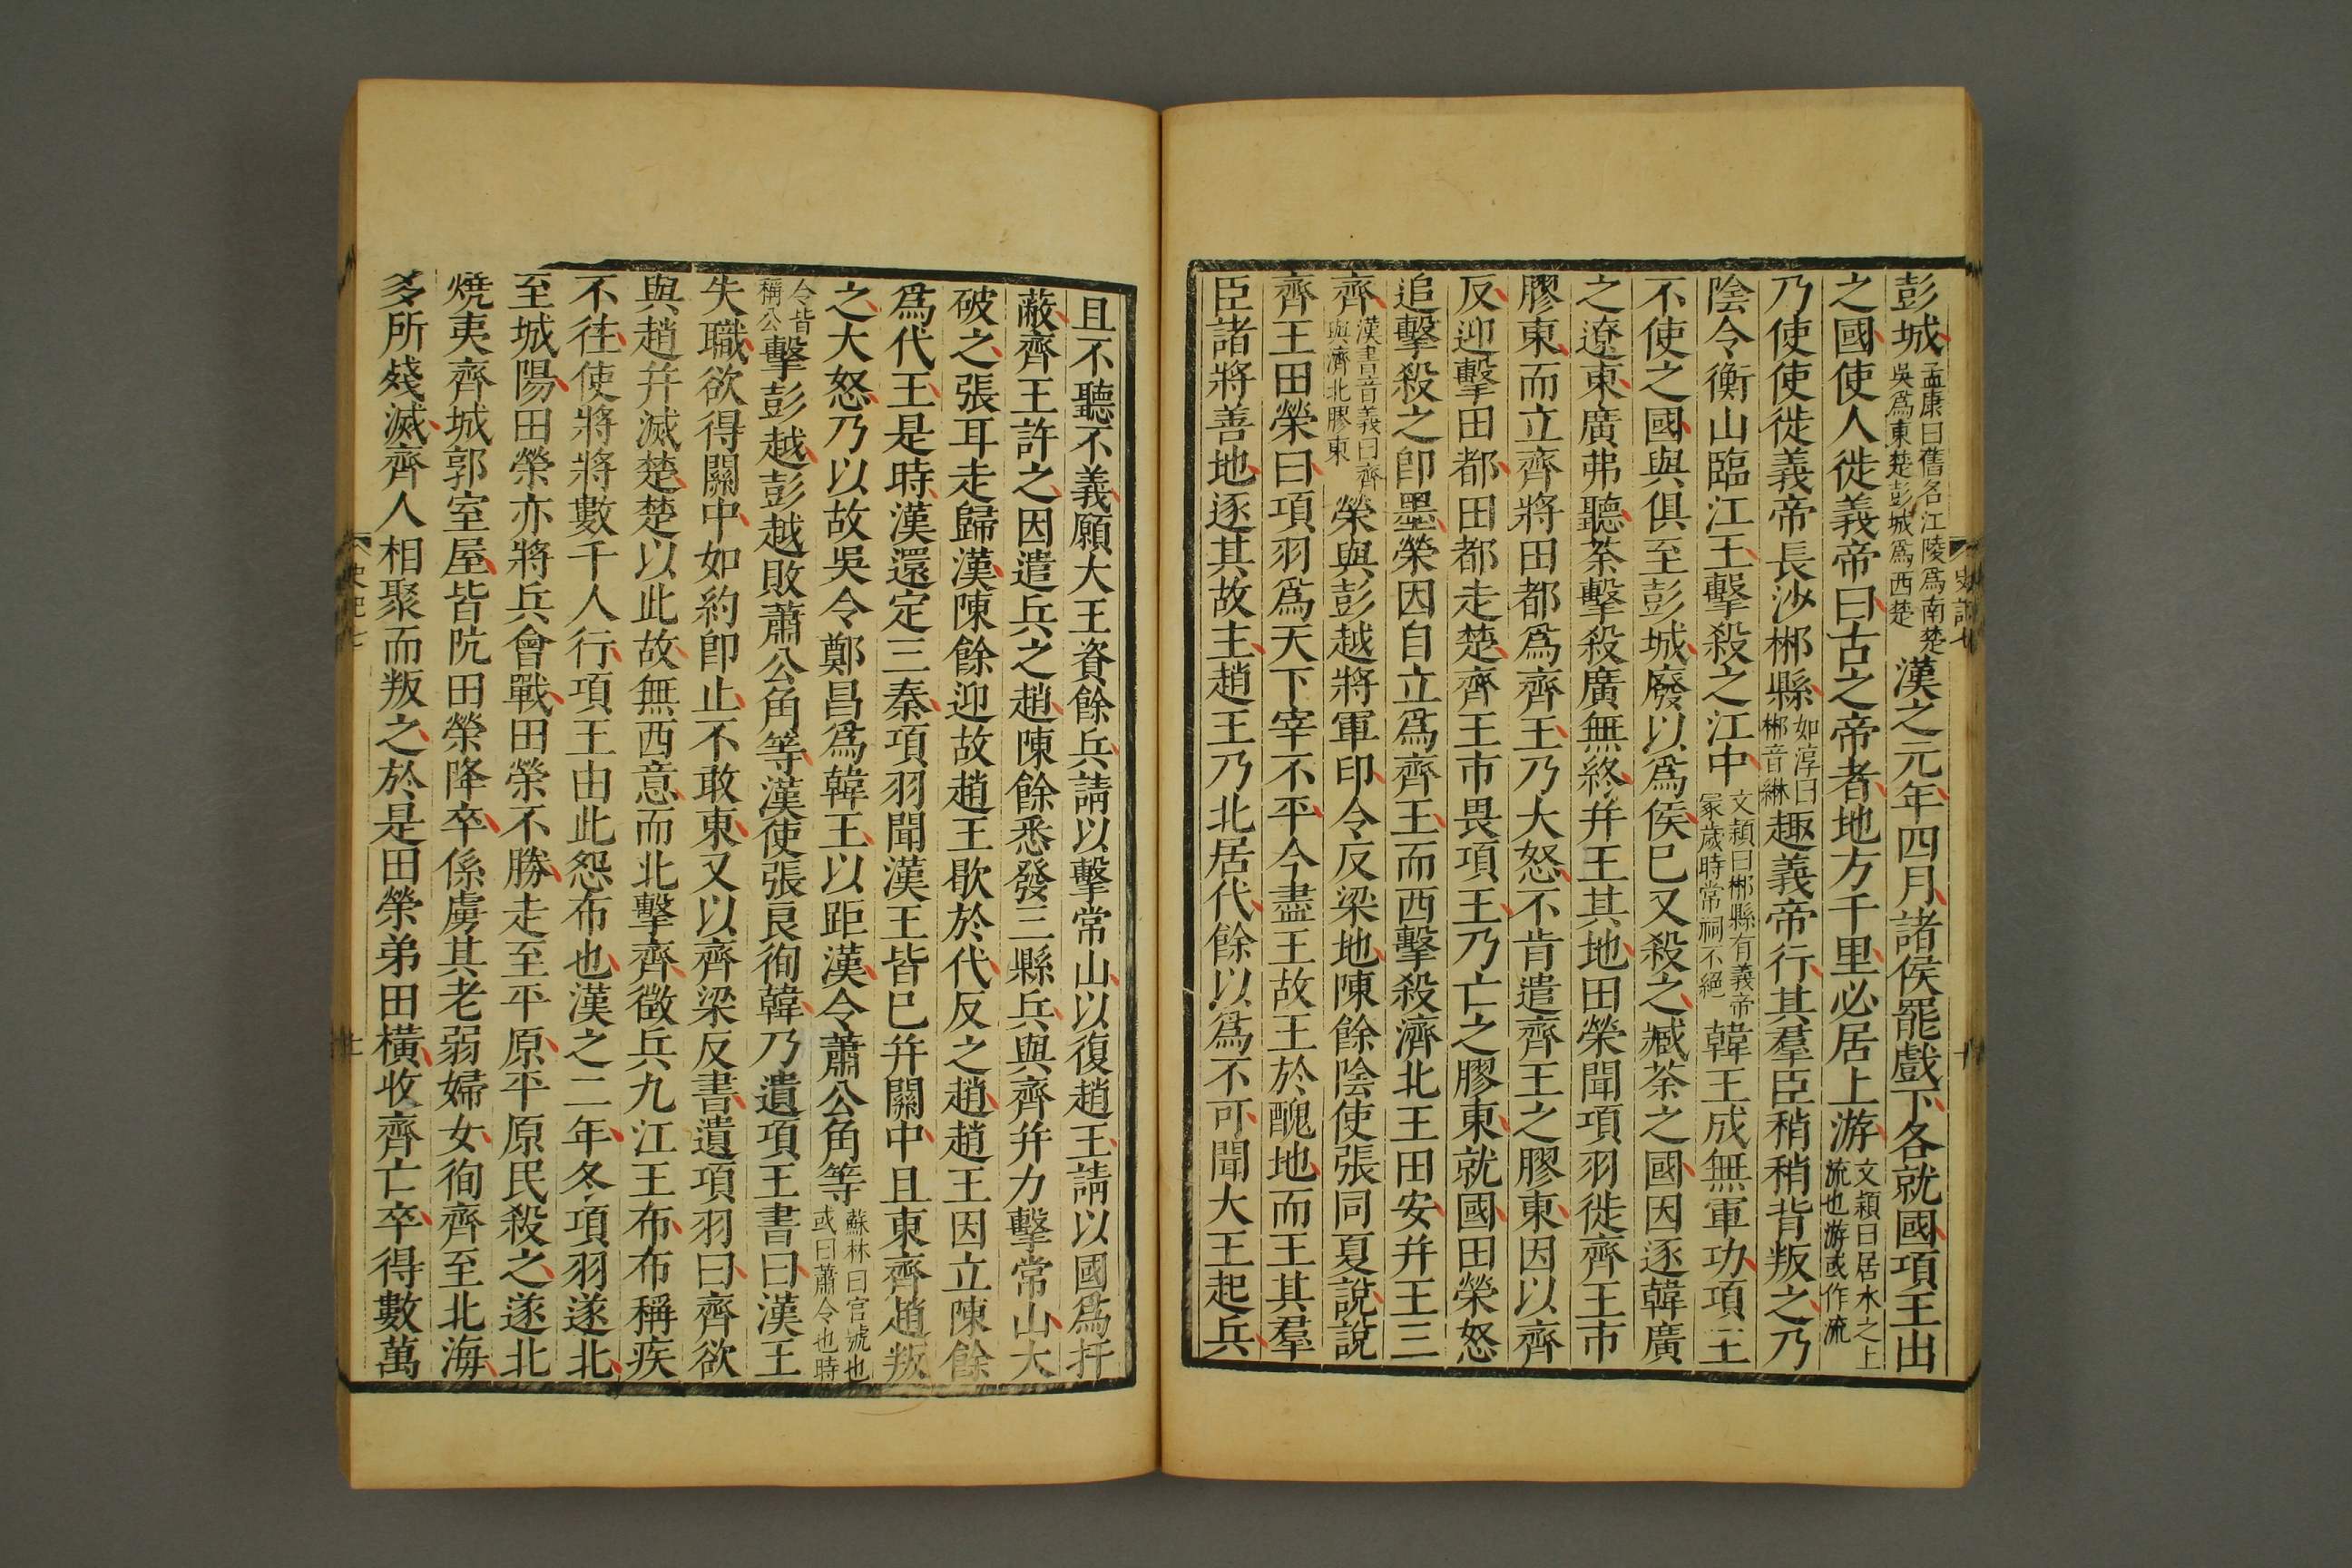 彭城孟康曰舊名江陵爲南楚吳爲東楚彭城爲西楚漢之元年四月諸侯罷戲下各就國項王出
之國使人徙義帝曰古之帝者地方千里必居上游文穎曰居水之上流也游或作流
乃使使徙義帝長沙郴縣如淳曰郴音綝趣義帝行其羣臣稍稍背叛之乃
陰令衡山臨江王擊殺之江中文穎曰郴縣有義帝冢歲時常祠不絕韓王成無軍功項王
不使之國與俱至彭城廢以爲侯已又殺之臧荼之國因逐韓廣
之遼東廣弗聽荼擊殺廣無終并王其地田榮聞項羽徙齊王市
膠東而立齊將田都爲齊王乃大怒不肯遣齊王之膠東因以齊
反迎擊田都田都走楚齊王市畏項王乃亡之膠東就國田榮怒
追擊殺之卽墨榮因自立爲齊王而西擊殺濟北王田安并王三
齊漢書音義曰齊與濟北膠東榮與彭越將軍印令反梁地陳餘陰使張同夏說說
齊王田榮曰項羽爲天下宰不平今盡王故王於醜地而王其羣
臣諸將善地逐其故主趙王乃北居代餘以爲不可聞大王起兵
且不聽不義願大王資餘兵請以擊常山以復趙王請以國爲扞
蔽齊王許之因遣兵之趙陳餘悉發三縣兵與齊并力擊常山大
破之張耳走歸漢陳餘迎故趙王歇於代反之趙趙王因立陳餘
爲代王是時漢還定三秦項羽聞漢王皆已并關中且東齊趙叛
之大怒乃以故吳令鄭昌爲韓王以距漢令蕭公角等蘇林曰官號也或曰蕭令也時
令皆稱公擊彭越彭越敗蕭公角等漢使張良徇韓乃遺項王書曰漢王
失職欲得關中如約卽止不敢東又以齊梁反書遺項羽曰齊欲
與趙并滅楚楚以此故無西意而北擊齊徵兵九江王布布稱疾
不往使將將數千人行項王由此怨布也漢之二年冬項羽遂北
至城陽田榮亦將兵會戰田榮不勝走至平原平原民殺之遂北
燒夷齊城郭室屋皆阬田榮降卒係虜其老弱婦女徇齊至北海
多所殘滅齊人相聚而叛之於是田榮弟田橫收齊亡卒得數萬